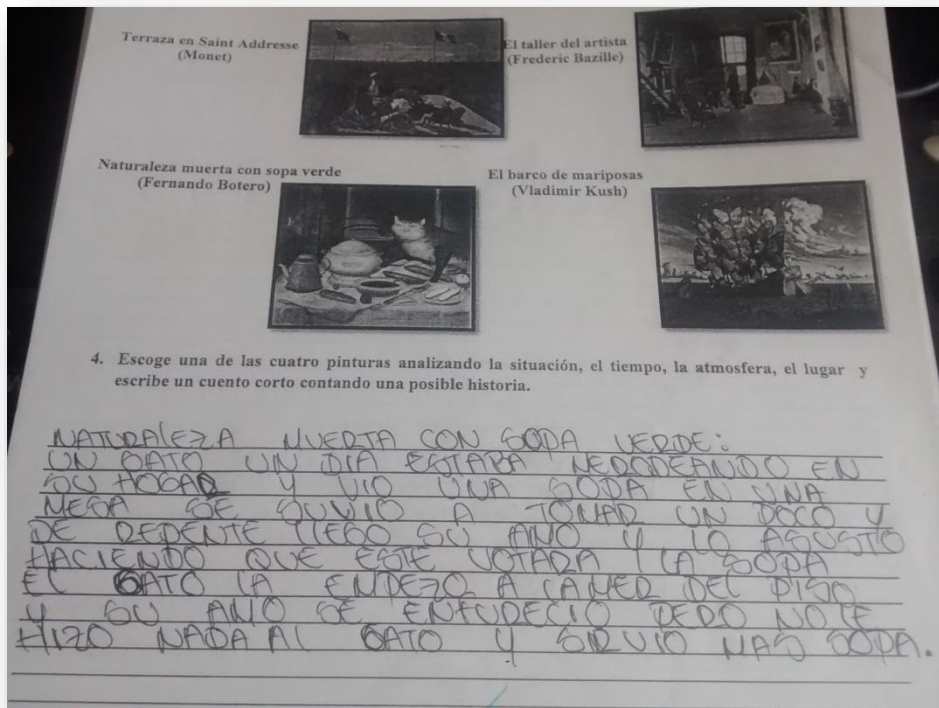 Terraza en Saint Addresse
(Monet)
El taller del artista
(Frederic Bazille)
Naturaleza muerta con sopa verde
(Fernando Botero)
El barco de mariposas
(Vladimir Kush)
4. Escoge una de las cuatro pinturas analizando la situación, el tiempo, la atmosfera, el lugar y
escribe un cuento corto contando una posible historia.
NATURALEZA MUERTA CON SOPA VERDE:
UN GATO UN DIA ESTABA MERODEANDO EN
SU HOGAR Y VIO UNA SOPA EN UNA
MESA SE SUVIO A TOMAR UN POCO Y
DE REPENTE LLEGO SU AMO Y LO ASUSTO
HACIENDO QUE ESTE VOTARA LA SOPA
EL GATO LA EMPEZO A LAMER DEL PISO
Y SU AMO SE ENFURECIO PERO NO LE
HIZO NADA AL GATO Y SIRVIO MAS SOPA.